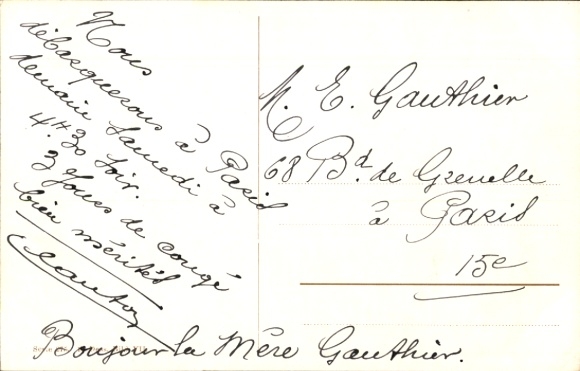 Nous
débarquerons à Paris
demain Samedi à
4H30 soir.
3 Jours de congé
bien mérités
M. E. Gauthier
68 Bd. de Grenelle
à Paris
15e
Bonjour la Mère Gauthier.